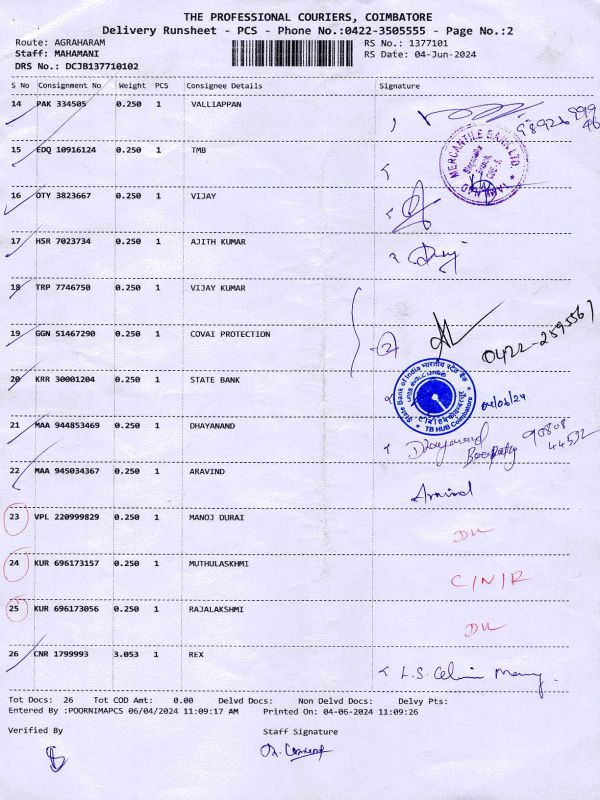 THE PROFESSIONAL COURIERS, COIMBATORE
Delivery Runsheet - PCS - Phone No.:0422-3505555 - Page No.:2
Route: AGRAHARAM RS No.: 1377101
Staff: MAHAMANI RS Date: 04-Jun-2024
DRS No.: DCJB137710102
S No Consignment No Weight PCS Consignee Details Signature
14 PAK 334505 0.250 1 VALLIAPPAN
15 EDQ 10916124 0.250 1 TMB
MERCANTILE BANK LTD.
16 OTY 3823667 0.250 1 VIJAY
17 HSR 7023734 0.250 1 AJITH KUMAR
18 TRP 7746750 0.250 1 VIJAY KUMAR
19 GGN 51467290 0.250 1 COVAI PROTECTION
2
20 KRR 30001204 0.250 1 STATE BANK
State Bank of India भारतीय स्टेट बैंक
TB HUB Coimbatore
04/06/24
21 MAA 944853469 0.250 1 DHAYANAND Dhayanand
22 MAA 945034367 0.250 1 ARAVIND Arvind
23 VPL 220999829 0.250 1 MANOJ DURAI DL
24 KUR 696173157 0.250 1 MUTHULASKHMI C/N/R
25 KUR 696173056 0.250 1 RAJALAKSHMI DL
26 CNR 1799993 3.053 1 REX L.S. Celin Mary
Tot Docs: 26 Tot COD Amt: 0.00 Delvd Docs: Non Delvd Docs: Delvy Pts:
Entered By :POORNIMAPCS 06/04/2024 11:09:17 AM Printed On: 04-06-2024 11:09:26
Verified By Staff Signature